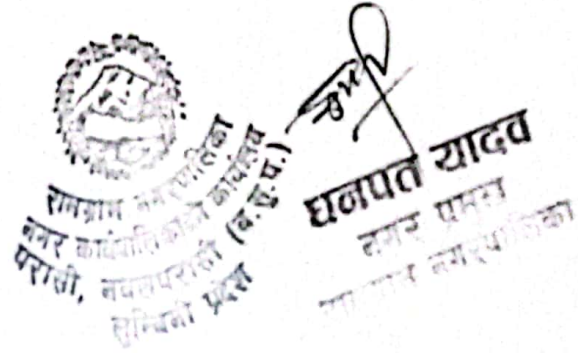 रामग्राम नगरपालिका
नगर कार्यपालिकाको कार्यालय
परासी, नवलपरासी (ब.सु.प.)
लुम्बिनी प्रदेश
धनपत यादव
नगर प्रमुख
रामग्राम नगरपालिका